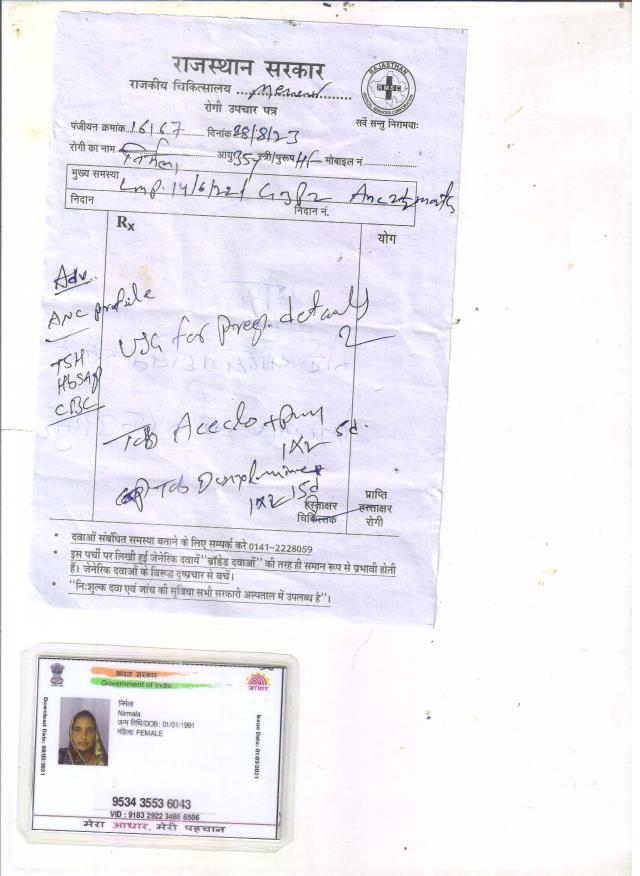 राजस्थान सरकार
राजकीय चिकित्सालय
रोगी उपचार पत्र
RAJASTHAN
RMSC
MEDICAL SERVICES CORPORATION
सर्वे सन्तु निरामयाः
पंजीयन क्रमांक 16167 दिनांक 28/8/23
रोगी का नाम निर्मला आयु 35y स्त्री/पुरूष Hf मोबाइल नं.
मुख्य समस्या Lmp. 14/6/22 G3P2 Anc
निदान निदान नं.
Rx
योग
Adv.
ANC profile
USG for preg. detail
TSH
HbSAg
CBC
Tab Aceclo + 
1X2 5d.
Tab
1X2 15d
हस्ताक्षर
चिकित्सक
प्राप्ति
हस्ताक्षर
रोगी
• दवाओं संबंधित समस्या बताने के लिए सम्पर्क करे 0141-2228059
• इस पर्ची पर लिखी हुई जेनेरिक दवायें "ब्रॉडेड दवाओं" की तरह ही समान रूप से प्रभावी होती
हैं। जेनेरिक दवाओं के विरूद्ध दुष्प्रचार से बचें।
• "निःशुल्क दवा एवं जांच की सुविधा सभी सरकारी अस्पताल में उपलब्ध है"।
भारत सरकार
Government of India
आधार
निर्मला
Nirmala
जन्म तिथि/DOB: 01/01/1991
महिला/ FEMALE
Download Date: 08/03/2021
Issue Date: 01/03/2021
9534 3553 6043
VID : 9183 2922 3488 6506
मेरा आधार, मेरी पहचान